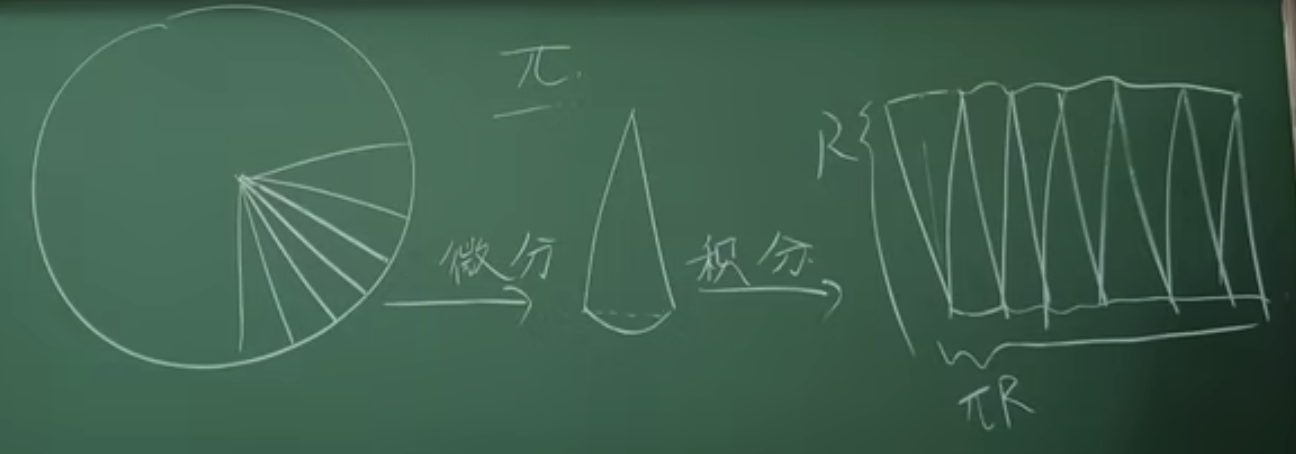 π
微分
积分
R
πR